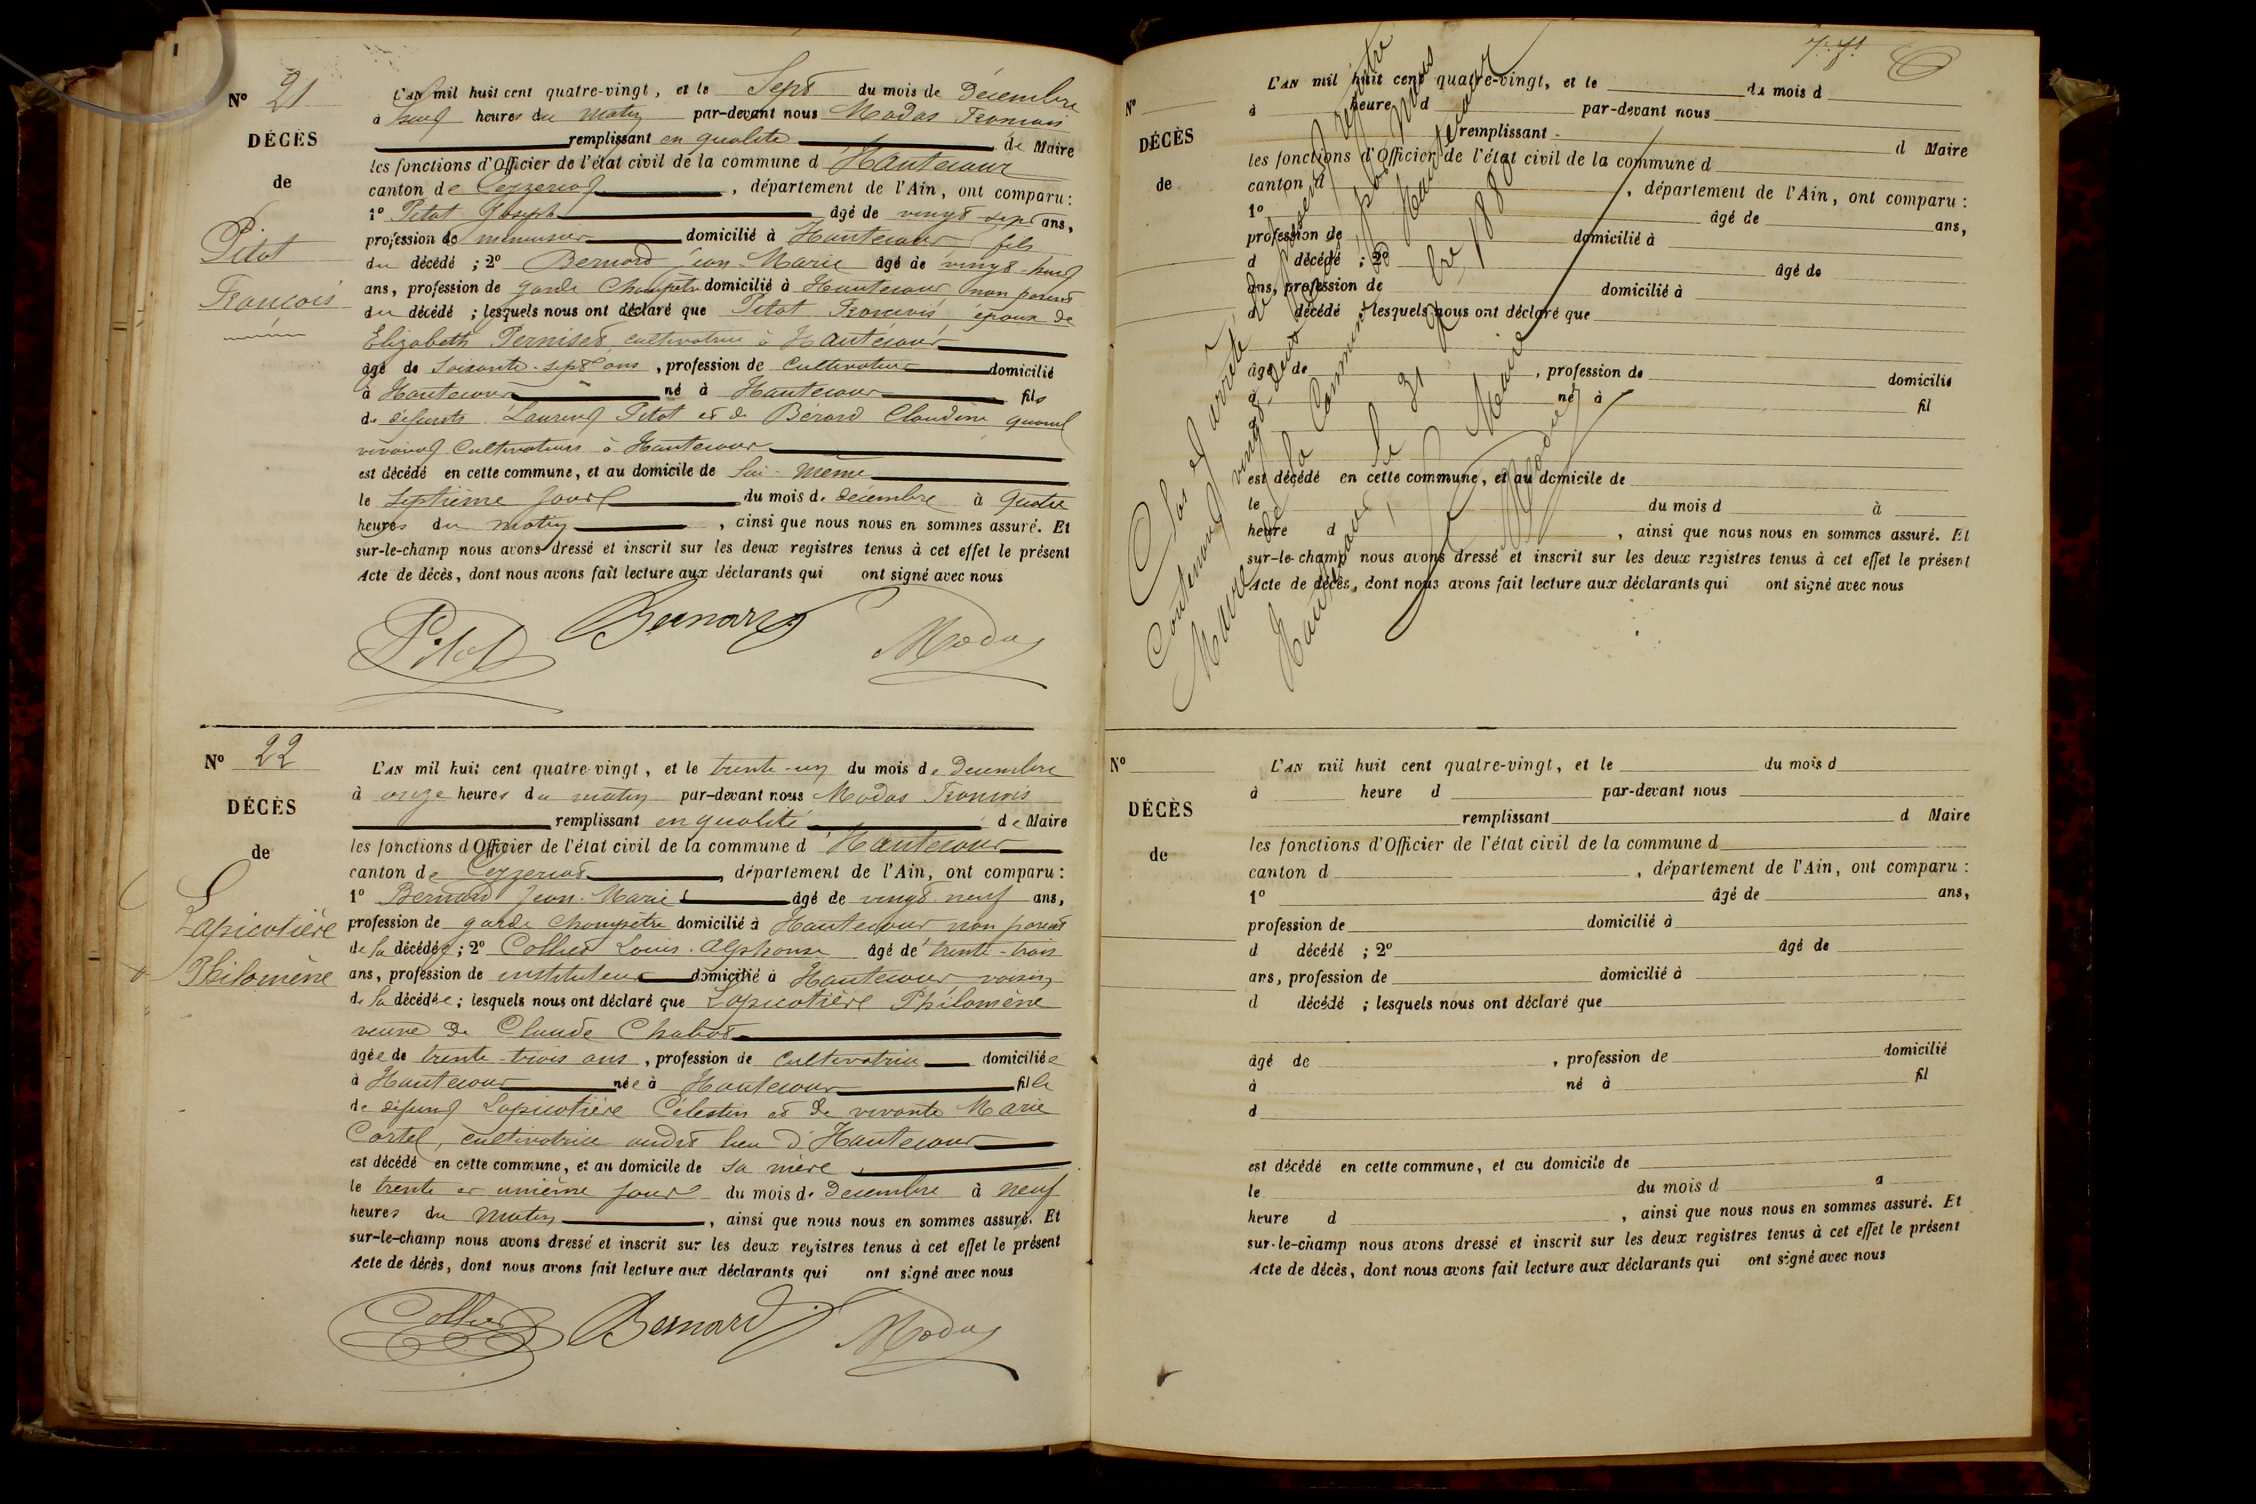 Nº 21
DÉCÈS
de
Pitot
François
L'AN mil huit cent quatre-vingt, et le Sept du mois de Décembre
à heures du matin par-devant nous Modas François
remplissant en qualité de Maire
les fonctions d'Officier de l'état civil de la commune d'Hautecour
canton de Ceyzeriat, département de l'Ain, ont comparu :
1º Pitot Joseph âgé de vingt-sept ans,
profession de menuisier domicilié à Hautecour fils
du décédé ; 2º Bernard Jean-Marie âgé de vingt-neuf
ans, profession de garde Champêtre domicilié à Hautecour non parent
du décédé ; lesquels nous ont déclaré que Pitot François époux de
Elizabeth cultivatrice à Hautecour
âgé de Soixante-sept ans, profession de Cultivateur domicilié
à Hautecour né à Hautecour fils
de défunts Laurent Pitot et de Bérard Claudine quand
vivant Cultivateurs à Hautecour
est décédé en cette commune, et au domicile de lui-même
le septième jour du mois de décembre à quatre
heures du matin, ainsi que nous nous en sommes assuré. Et
sur-le-champ nous avons dressé et inscrit sur les deux registres tenus à cet effet le présent
Acte de décès, dont nous avons fait lecture aux déclarants qui ont signé avec nous
Pitot Bernard Modas
Nº 22
DÉCÈS
de
Lapicotière
Philomène
L'AN mil huit cent quatre-vingt, et le trente-un du mois de Décembre
à onze heures du matin par-devant nous Modas François
remplissant en qualité de Maire
les fonctions d'Officier de l'état civil de la commune d'Hautecour
canton de Ceyzeriat, département de l'Ain, ont comparu :
1º Bernard Jean-Marie âgé de vingt-neuf ans,
profession de garde Champêtre domicilié à Hautecour non parent
de la décédée ; 2º Collet Louis-Alphonse âgé de trente-trois
ans, profession de instituteur domicilié à Hautecour voisin
de la décédée ; lesquels nous ont déclaré que Lapicotière Philomène
veuve de Claude Chabot
âgée de trente-trois ans, profession de Cultivatrice domiciliée
à Hautecour née à Hautecour fille
de défunt Lapicotière Célestin et de vivante Marie
Cortel, cultivatrice audit lieu d'Hautecour
est décédé en cette commune, et au domicile de sa mère
le trente et unième jour du mois de Décembre à neuf
heures du matin, ainsi que nous nous en sommes assuré. Et
sur-le-champ nous avons dressé et inscrit sur les deux registres tenus à cet effet le présent
Acte de décès, dont nous avons fait lecture aux déclarants qui ont signé avec nous
Collet Bernard Modas
Nº
DÉCÈS
de
L'AN mil huit cent quatre-vingt, et le du mois d
à heure d par-devant nous
remplissant d Maire
les fonctions d'Officier de l'état civil de la commune d
canton d , département de l'Ain, ont comparu :
1º âgé de ans,
profession de domicilié à
d décédé ; 2º âgé de
ans, profession de domicilié à
d décédé ; lesquels nous ont déclaré que
âgé de , profession de domicilié
à né à fil
d
est décédé en cette commune, et au domicile de
le du mois d à
heure d , ainsi que nous nous en sommes assuré. Et
sur-le-champ nous avons dressé et inscrit sur les deux registres tenus à cet effet le présent
Acte de décès, dont nous avons fait lecture aux déclarants qui ont signé avec nous
Clos et arrêté le présent registre
Contenant vingt-deux par nous
Maire de la Commune Hautecour
Hautecour, le 31 bre 1880
Le Maire
Modas
Nº
DÉCÈS
de
L'AN mil huit cent quatre-vingt, et le du mois d
à heure d par-devant nous
remplissant d Maire
les fonctions d'Officier de l'état civil de la commune d
canton d , département de l'Ain, ont comparu :
1º âgé de ans,
profession de domicilié à
d décédé ; 2º âgé de
ans, profession de domicilié à
d décédé ; lesquels nous ont déclaré que
âgé de , profession de domicilié
à né à fil
d
est décédé en cette commune, et au domicile de
le du mois d à
heure d , ainsi que nous nous en sommes assuré. Et
sur-le-champ nous avons dressé et inscrit sur les deux registres tenus à cet effet le présent
Acte de décès, dont nous avons fait lecture aux déclarants qui ont signé avec nous